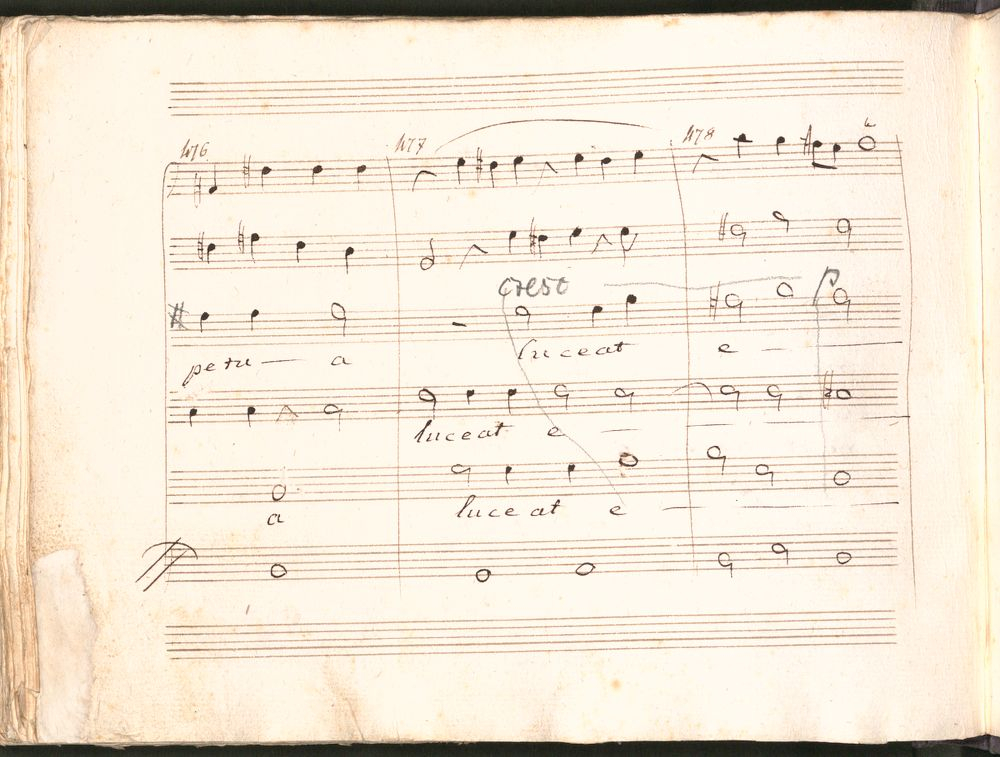 476 477 478
cresc p
petu - a luceat e -
luceat e -
a luceat e -